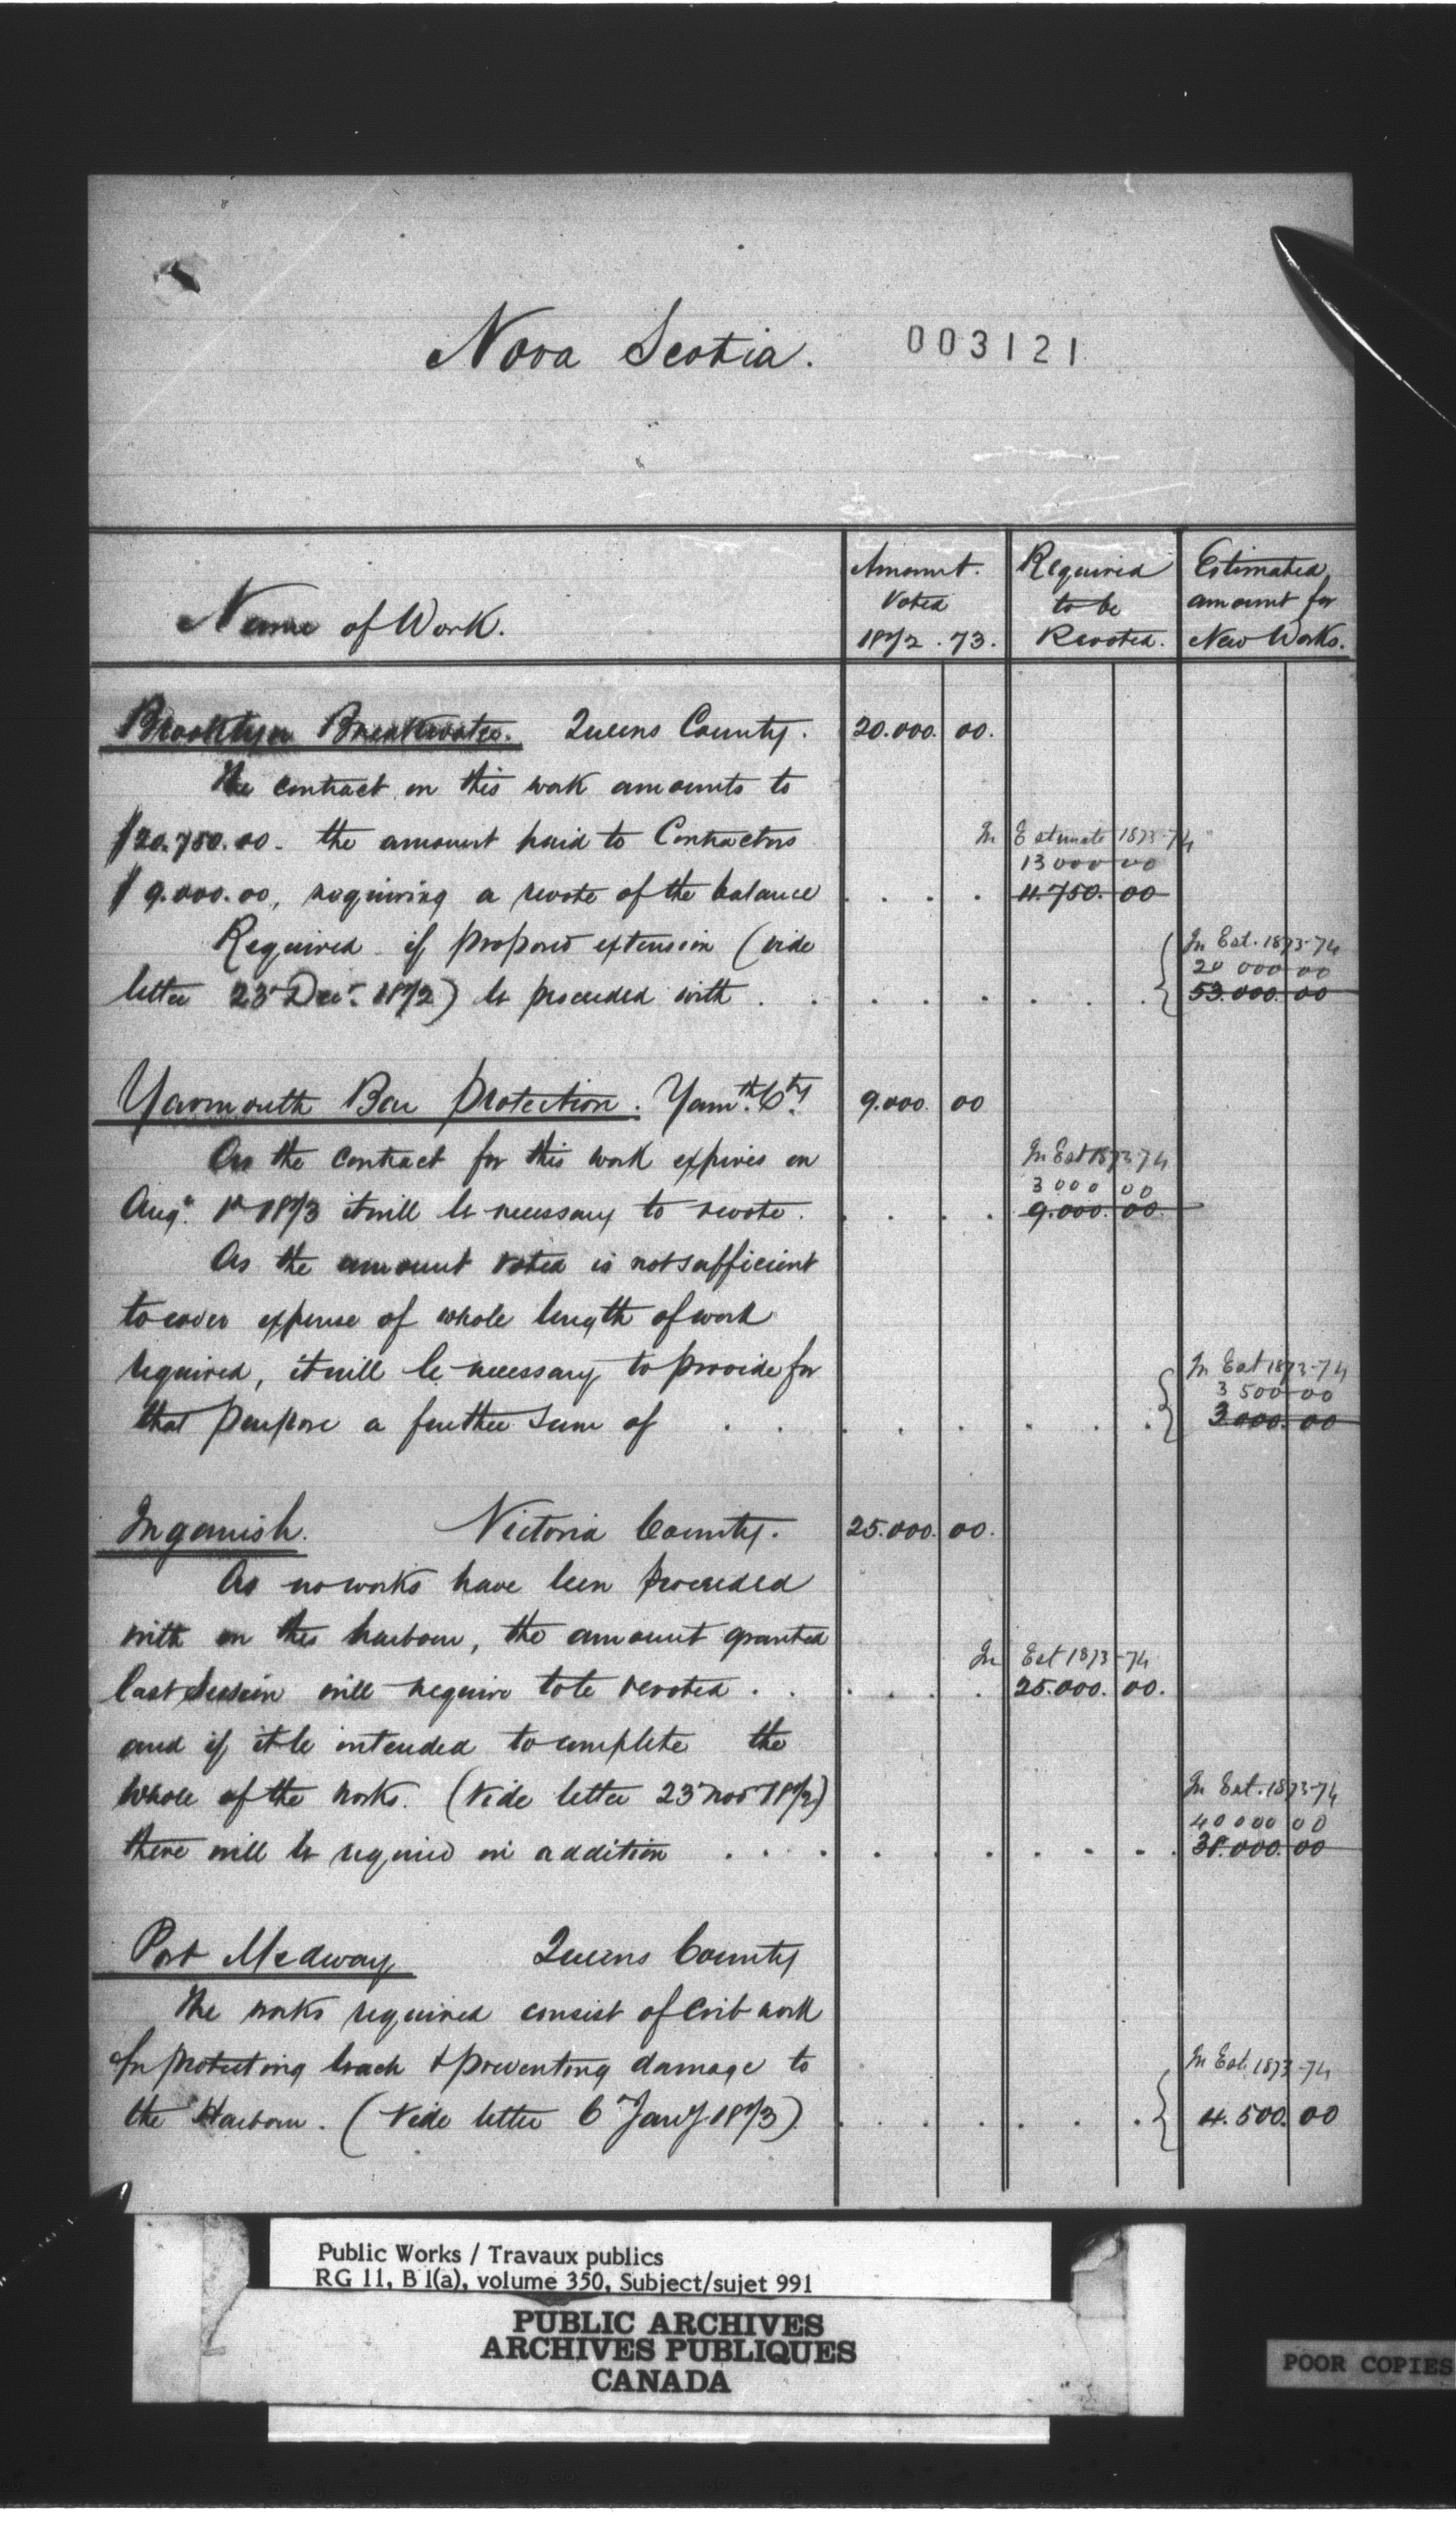 Nova Scotia. 003121
Name of Work.
Amount Voted 1872.73.
Required to be Revoted.
Estimated amount for New Works.
Brooklyn Breakwater. Queens County. 20.000.00.
The contract on this work amounts to
$20.750.00. the amount paid to Contractors In Estimate 1873-74
13 000 00
$9.000.00, requiring a revote of the balance . . . . 11.750.00
Required if proposed extension (vide In Est. 1873-74
20 000 00
letter 23d Decr. 1872) be proceeded with . . . . . . . . 53.000.00
Yarmouth Bar Protection. Yarmth. Cty. 9.000.00
As the contract for this work expires on In Est 1873-74
3000 00
Augt. 1st 1873 it will be necessary to revote. . . . . 9.000.00.
As the amount voted is not sufficient
to cover expense of whole length of work
required, it will be necessary to provide for In Est 1873-74
3 500 00
that purpose a further sum of . . . . . . . . 3.000.00
Inganish. Victoria County. 25.000.00.
As no works have been proceeded
with on this harbour, the amount granted In Est 1873-74
last Session will require to be revoted . . . . . . 25.000.00.
and if it be intended to complete the
whole of the works. (Vide letter 23d Nov 1872) In Est. 1873-74
40000 00
there will be required in addition . . . . . . . . . .000.00
Port Medway Queens County
The works required consist of Crib work
for protecting beach & preventing damage to In Est. 1873-74
the Harbour. (Vide letter 6th Jany 1873). . . . . . . 4.500.00
Public Works / Travaux publics
RG 11, B 1(a), volume 350, Subject/sujet 991
PUBLIC ARCHIVES
ARCHIVES PUBLIQUES
CANADA
POOR COPIES